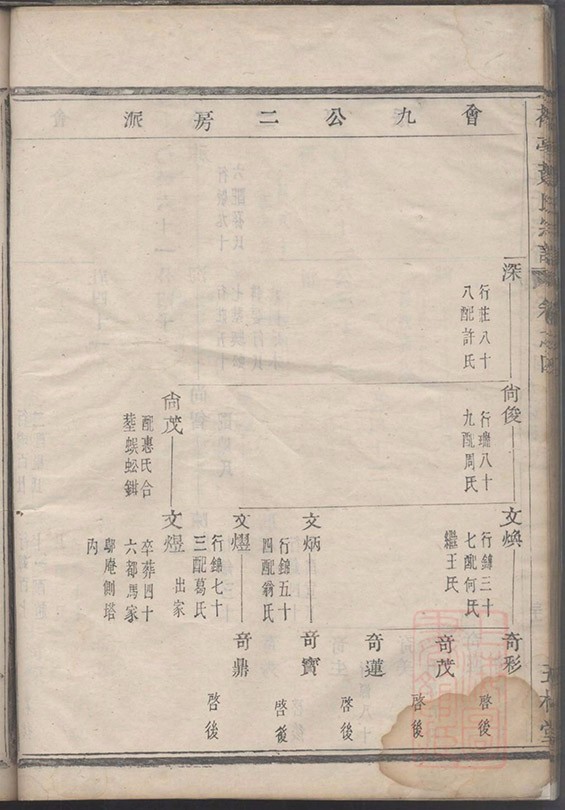 會九公二房派
深
行莊八十
八配許氏
尙俊
行璣八十
九配周氏
尙茂
配惠氏合
葬蜈蚣鉗
文煥
行錦三十
七配何氏
繼王氏
文炳
行錦五十
四配翁氏
文燿
行錦七十
三配葛氏
文煜
出家
卒葬四十
六都馬家
鄔庵側塔
內
奇彩
啓後
奇茂
啓後
奇蓮
啓後
奇寶
啓後
奇鼎
啓後
氏宗譜
卷之四
堂